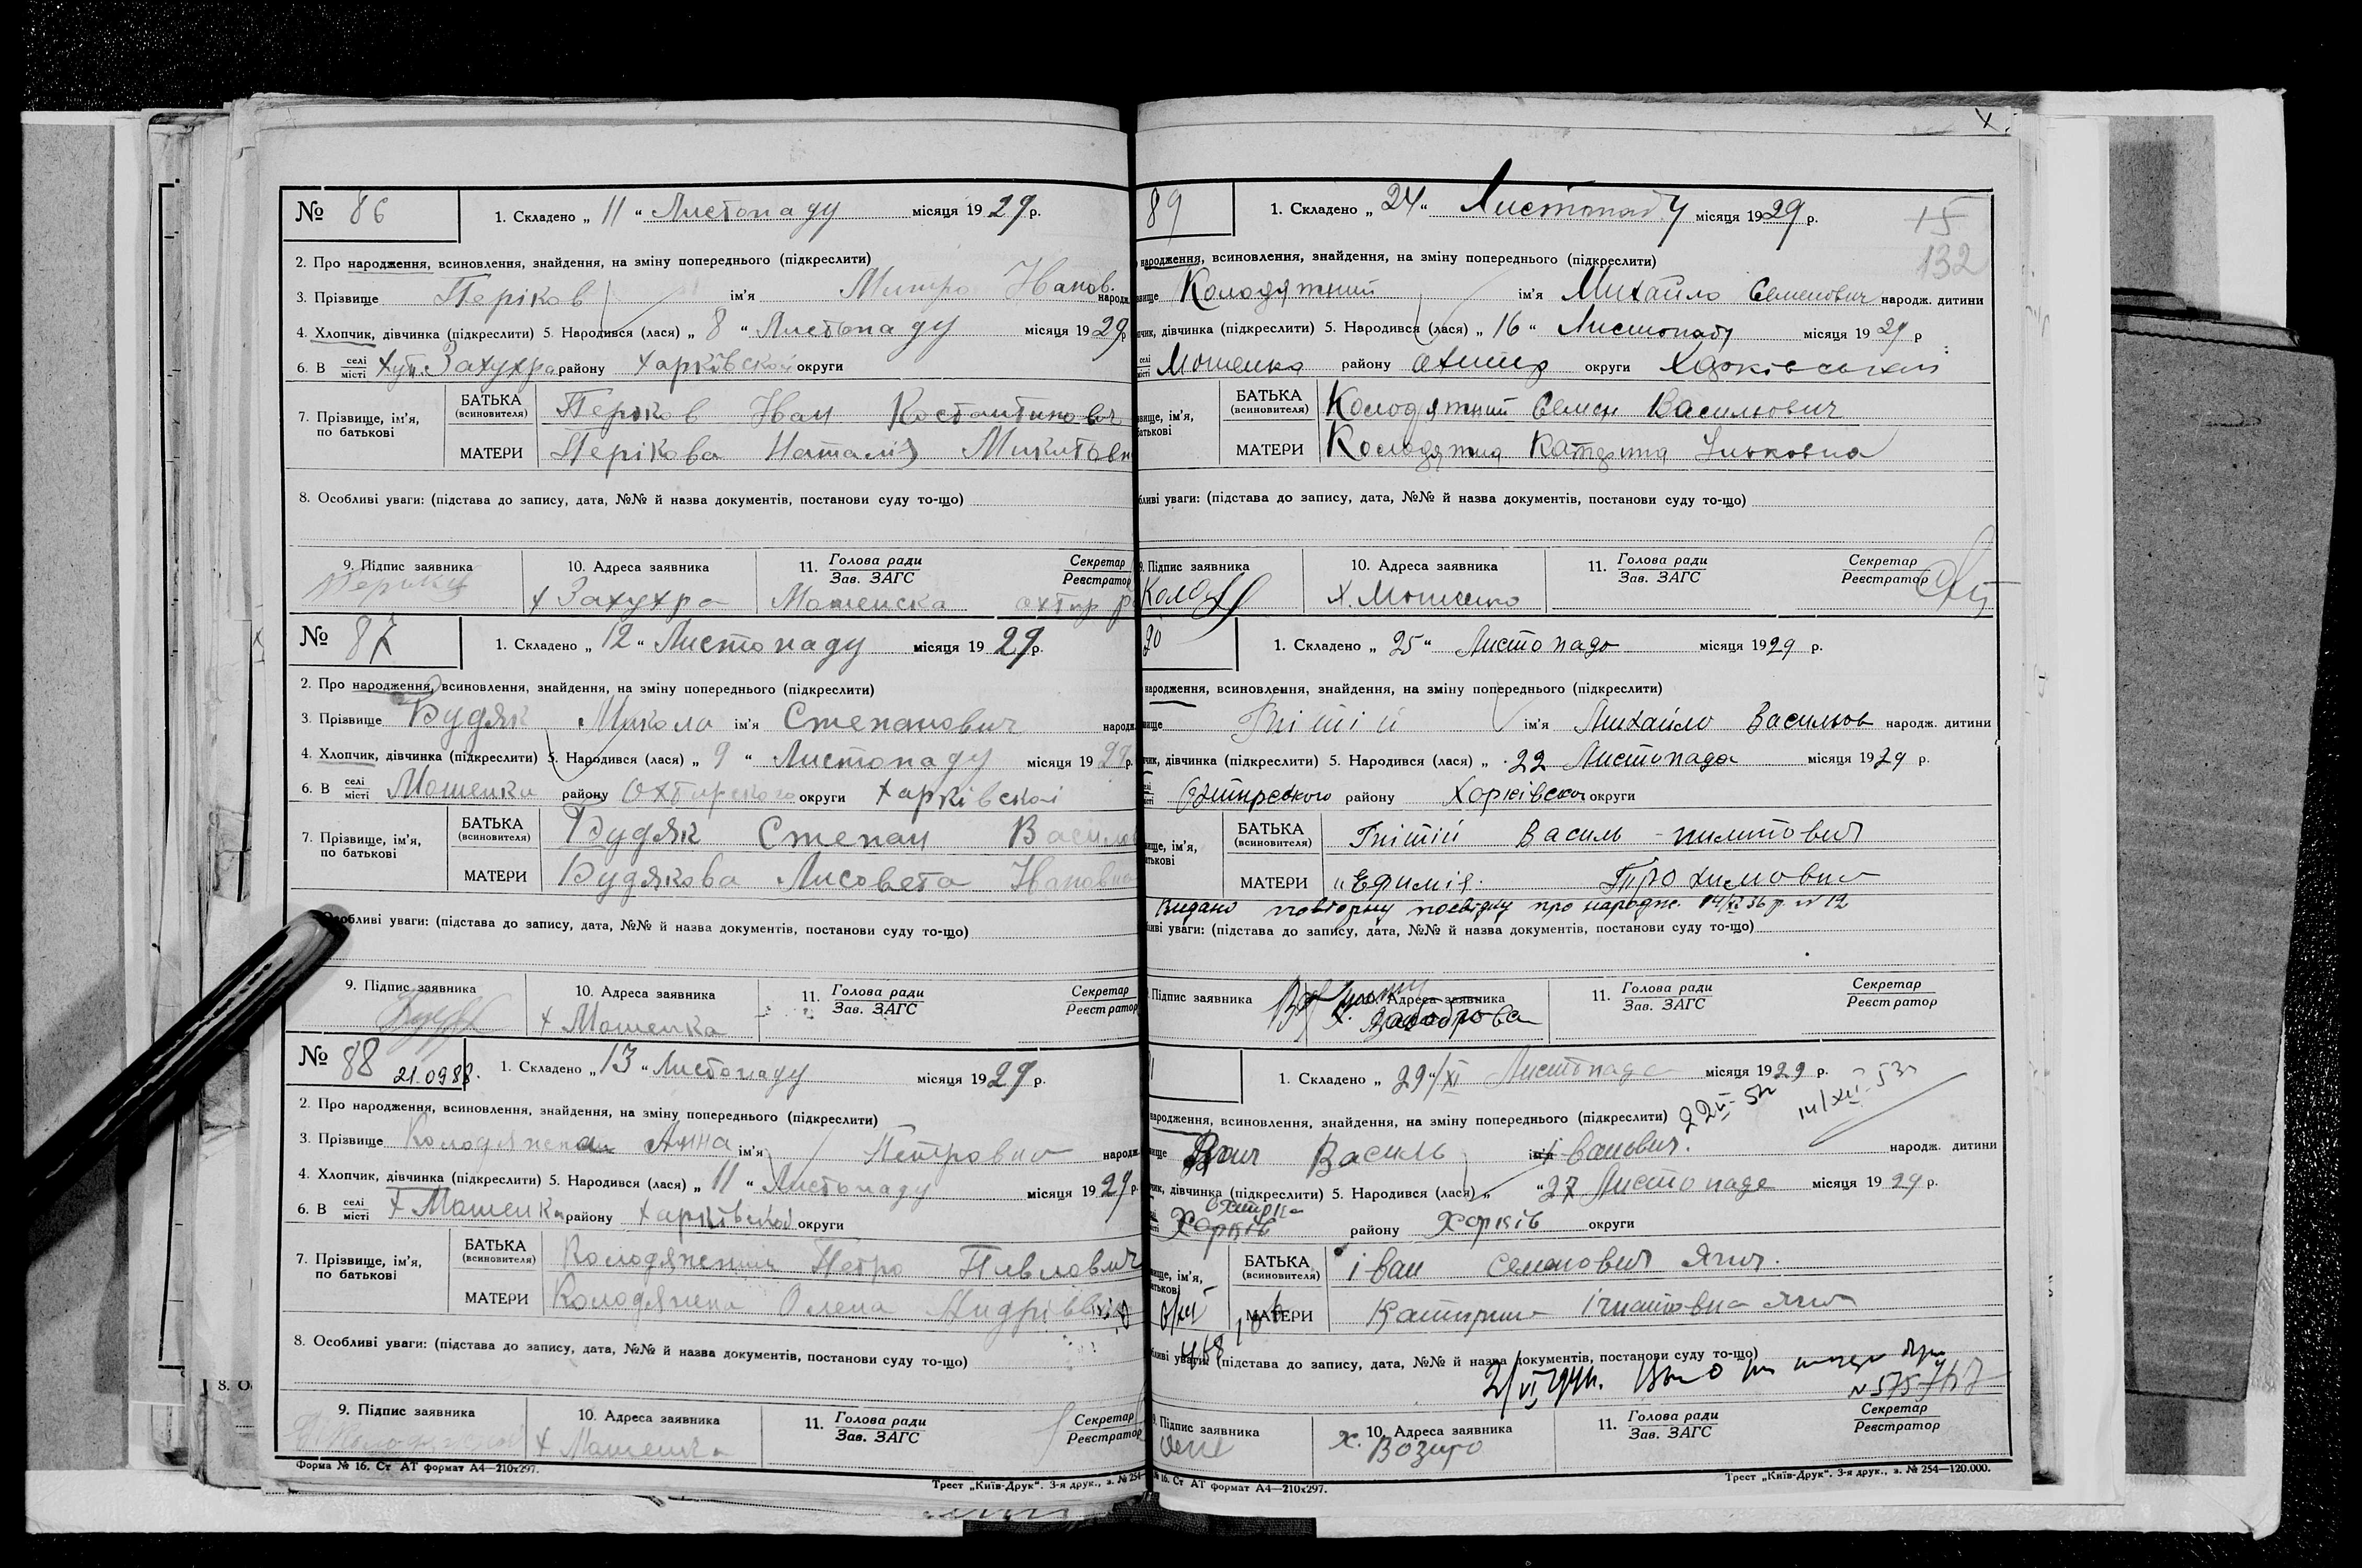 № 86
1. Складено „ 11 “ Листопаду місяця 1929 р.
2. Про народження, всиновлення, знайдення, на зміну попереднього (підкреслити)
3. Прізвище Періков ім'я Митро Іванов. народж.
4. Хлопчик, дівчинка (підкреслити) 5. Народився (лася) „ 8 “ Листопаду місяця 1929 р
6. В селі місті хут. Захухра району Харківської округи
7. Прізвище, ім'я, по батькові
БАТЬКА (всиновителя) Періков Іван Костантинович
МАТЕРИ Перікова Наталія Микитовн
8. Особливі уваги: (підстава до запису, дата, №№ й назва документів, постанови суду то-що)
9. Підпис заявника 10. Адреса заявника 11. Голова ради Зав. ЗАГС Секретар Реєстратор
х Захухра
№ 87
1. Складено „ 12 “ Листопаду місяця 1929 р.
2. Про народження, всиновлення, знайдення, на зміну попереднього (підкреслити)
3. Прізвище Будяк Микола ім'я Степанович народж.
4. Хлопчик, дівчинка (підкреслити) 5. Народився (лася) „ 9 “ Листопаду місяця 1929 р.
6. В селі місті Мошенка району Охтирского округи Харківскої
7. Прізвище, ім'я, по батькові
БАТЬКА (всиновителя) Будяк Степан Василь
МАТЕРИ Будякова Лисовета Івановна
Особливі уваги: (підстава до запису, дата, №№ й назва документів, постанови суду то-що)
9. Підпис заявника 10. Адреса заявника 11. Голова ради Зав. ЗАГС Секретар Реєстратор
х Мошенка
№ 88 21.098
1. Складено „ 13 “ Листопаду місяця 1929 р.
2. Про народження, всиновлення, знайдення, на зміну попереднього (підкреслити)
3. Прізвище Анна ім'я Петровна народж.
4. Хлопчик, дівчинка (підкреслити) 5. Народився (лася) „ 11 “ Листопаду місяця 1929 р.
6. В селі місті х Мошенка району Харківской округи
7. Прізвище, ім'я, по батькові
БАТЬКА (всиновителя) Колодяжний Петро Павлович
МАТЕРИ Колодяжна Олена
8. Особливі уваги: (підстава до запису, дата, №№ й назва документів, постанови суду то-що)
9. Підпис заявника 10. Адреса заявника 11. Голова ради Зав. ЗАГС Секретар Реєстратор
х Мошенка
Форма № 16. Ст АТ формат А4—210x297.
Трест „Київ-Друк“. 3-я друк., з. № 254
X.
89
1. Складено „ 24 “ Листопаду місяця 1929 р.
15
132
народження, всиновлення, знайдення, на зміну попереднього (підкреслити)
Колодяжний ім'я Михайло Семенович народж. дитини
дівчинка (підкреслити) 5. Народився (лася) „ 16 “ Листопаду місяця 1929 р
Мошенка району Охтир округи Харківської
БАТЬКА (всиновителя) Колодяжний Семен Васильович
МАТЕРИ Колодяжна Катерина Ільковна
уваги: (підстава до запису, дата, №№ й назва документів, постанови суду то-що)
Підпис заявника 10. Адреса заявника 11. Голова ради Зав. ЗАГС Секретар Реєстратор
х. Мошенко
90
1. Складено „ 25 “ Листопада місяця 1929 р.
народження, всиновлення, знайдення, на зміну попереднього (підкреслити)
Гнітій ім'я Михайло Васильов народж. дитини
дівчинка (підкреслити) 5. Народився (лася) „ 22 Листопада місяця 1929 р.
Охтирского району Харківскої округи
БАТЬКА (всиновителя) Гнітій Василь
МАТЕРИ „ Ефимія Трохимовна
Видано повторну посвідку про народж. 36 р. № 12
уваги: (підстава до запису, дата, №№ й назва документів, постанови суду то-що)
Підпис заявника Адреса заявника 11. Голова ради Зав. ЗАГС Секретар Реєстратор
1. Складено „ 29“/XI Листопада місяця 1929 р.
народження, всиновлення, знайдення, на зміну попереднього (підкреслити)
Василь ім'я Іванович. народж. дитини
дівчинка (підкреслити) 5. Народився (лася) „ “ 27 Листопаде місяця 1929 р.
Харків району Харків округи
БАТЬКА (всиновителя) Іван Семонович Ягич.
МАТЕРИ Катирина Ігнатовна
уваги: (підстава до запису, дата, №№ й назва документів, постанови суду то-що)
№ 575
Підпис заявника 10. Адреса заявника 11. Голова ради Зав. ЗАГС Секретар Реєстратор
№ 16. Ст АТ формат А4—210x297.
Трест „Київ-Друк“. 3-я друк., з. № 254—120.000.